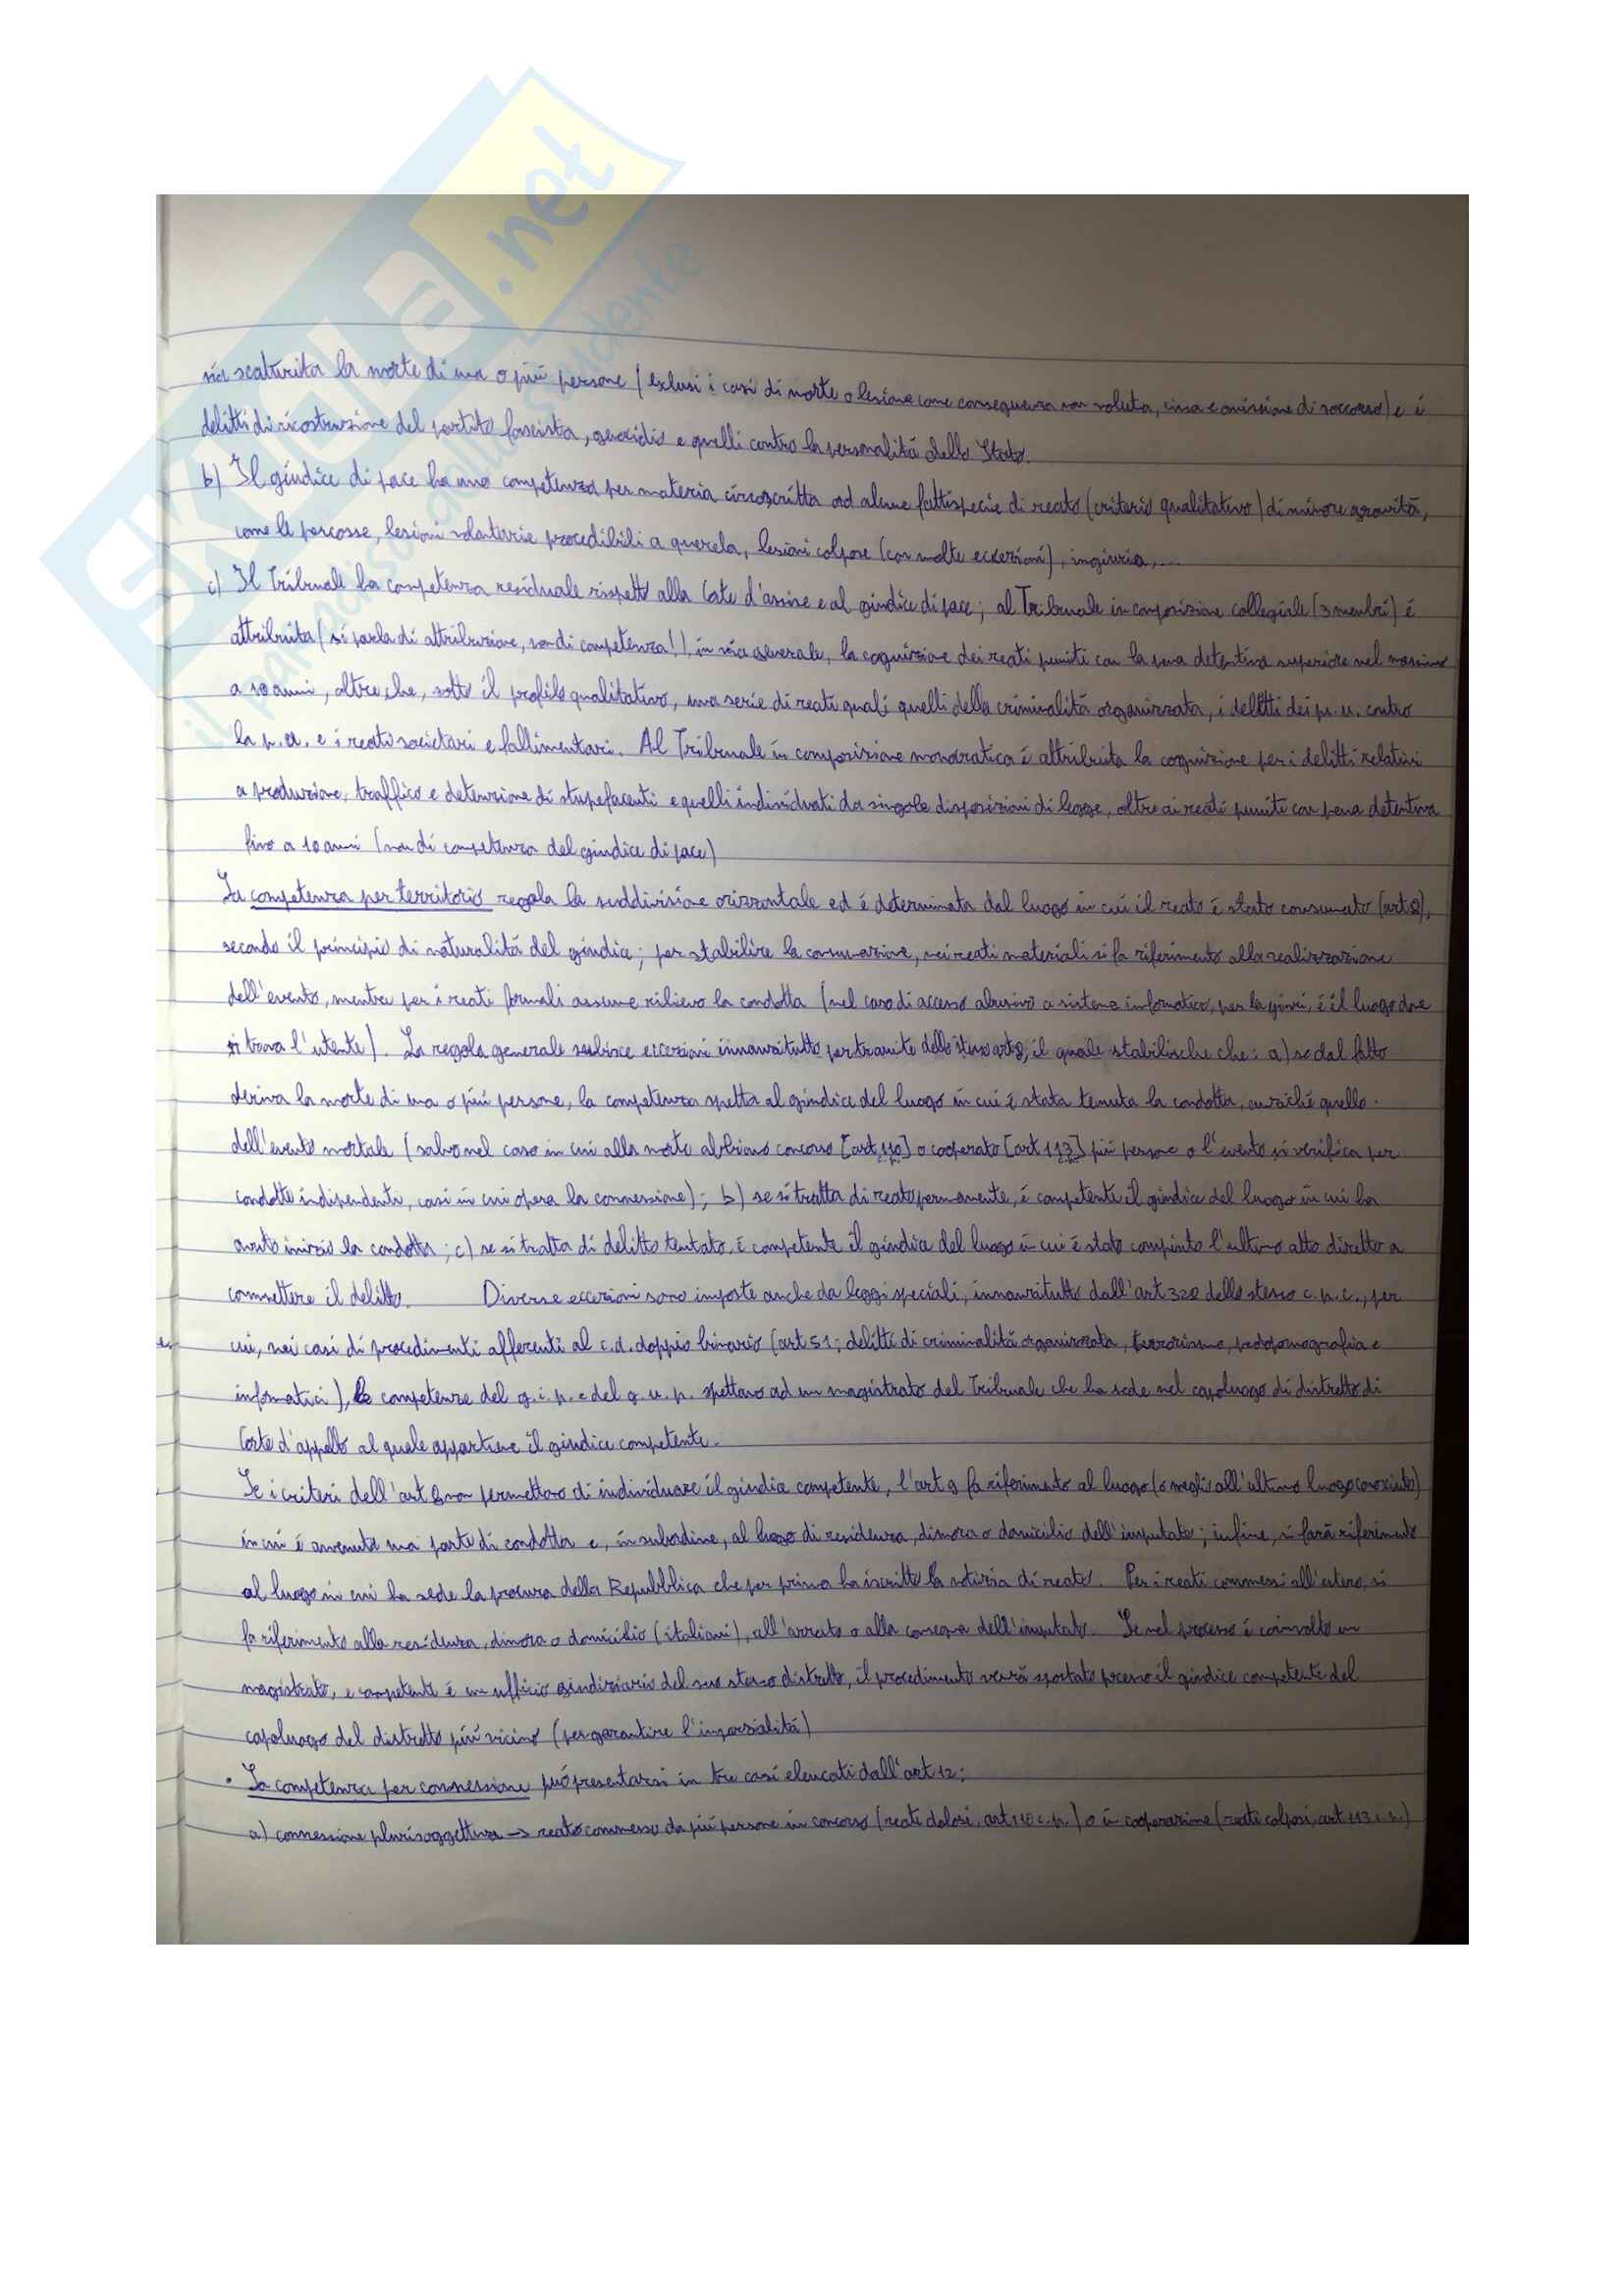 SKUOLA.net
il paradiso dello studente
sia scaturita la morte di una o più persone (esclusi i casi di morte o lesione come conseguenza non voluta, rissa e omissione di soccorso) e i
delitti di ricostruzione del partito fascista, genocidio e quelli contro la personalità dello Stato.
b) Il giudice di pace ha una competenza per materia circoscritta ad alcune fattispecie di reato (criterio qualitativo) di minore gravità,
come le percosse, lesioni volontarie procedibili a querela, lesioni colpose (con molte eccezioni), ingiuria,...
c) Il Tribunale ha competenza residuale rispetto alla Corte d'assise e al giudice di pace; al Tribunale in composizione collegiale (3 membri) è
attribuita (si parla di attribuzione, non di competenza!), in via generale, la cognizione dei reati puniti con la pena detentiva superiore nel massimo
a 10 anni, oltre che, sotto il profilo qualitativo, una serie di reati quali quelli della criminalità organizzata, i delitti dei p.u. contro
la p.a. e i reati societari e fallimentari. Al Tribunale in composizione monocratica è attribuita la cognizione per i delitti relativi
a produzione, traffico e detenzione di stupefacenti e quelli individuati da singole disposizioni di legge, oltre ai reati puniti con pena detentiva
fino a 10 anni (non di competenza del giudice di pace)
La competenza per territorio regola la suddivisione orizzontale ed è determinata dal luogo in cui il reato è stato consumato (art 8),
secondo il principio di naturalità del giudice; per stabilire la consumazione, nei reati materiali si fa riferimento alla realizzazione
dell'evento, mentre per i reati formali assume rilievo la condotta (nel caso di accesso abusivo a sistema informatico, per la giuri, è il luogo dove
si trova l'utente). La regola generale subisce eccezioni innanzitutto per tramite dello stesso art 8, il quale stabilische che: a) se dal fatto
deriva la morte di una o più persone, la competenza spetta al giudice del luogo in cui è stata tenuta la condotta, anziché quello
dell'evento mortale (salvo nel caso in cui alla morte abbiano concorso [art 110] o cooperato [art 113] più persone o l'evento si verifica per
condotte indipendenti, casi in cui opera la connessione); b) se si tratta di reato permanente, è competente il giudice del luogo in cui ha
avuto inizio la condotta; c) se si tratta di delitto tentato, è competente il giudice del luogo in cui è stato compiuto l'ultimo atto diretto a
commettere il delitto. Diverse eccezioni sono imposte anche da leggi speciali, innanzitutto dall'art 328 dello stesso c.p.c., per
cui, nei casi di procedimenti afferenti al c.d. doppio binario (art 51; delitti di criminalità organizzata, terrorismo, pedopornografia e
informatici), le competenze del g.i.p. e del g.u.p. spettano ad un magistrato del Tribunale che ha sede nel capoluogo di distretto di
Corte d'appello al quale appartiene il giudice competente.
Se i criteri dell'art 8 non permettono di individuare il giudice competente, l'art 9 fa riferimento al luogo (o meglio all'ultimo luogo conosciuto)
in cui è avvenuta una parte di condotta e, in subordine, al luogo di residenza, dimora o domicilio dell'imputato; infine, si farà riferimento
al luogo in cui ha sede la procura della Repubblica che per prima ha iscritto la notizia di reato. Per i reati commessi all'estero, si
fa riferimento alla residenza, dimora o domicilio (italiani), all'arresto o alla consegna dell'imputato. Se nel processo è coinvolto un
magistrato, e competente è un ufficio giudiziario del suo stesso distretto, il procedimento verrà spostato presso il giudice competente del
capoluogo del distretto più vicino (per garantire l'imparzialità)
• La competenza per connessione può presentarsi in tre casi elencati dall'art 12:
a) connessione plurisoggettiva → reato commesso da più persone in concorso (reati dolosi, art 110 c.p.) o in cooperazione (reati colposi, art 113 c.p.)